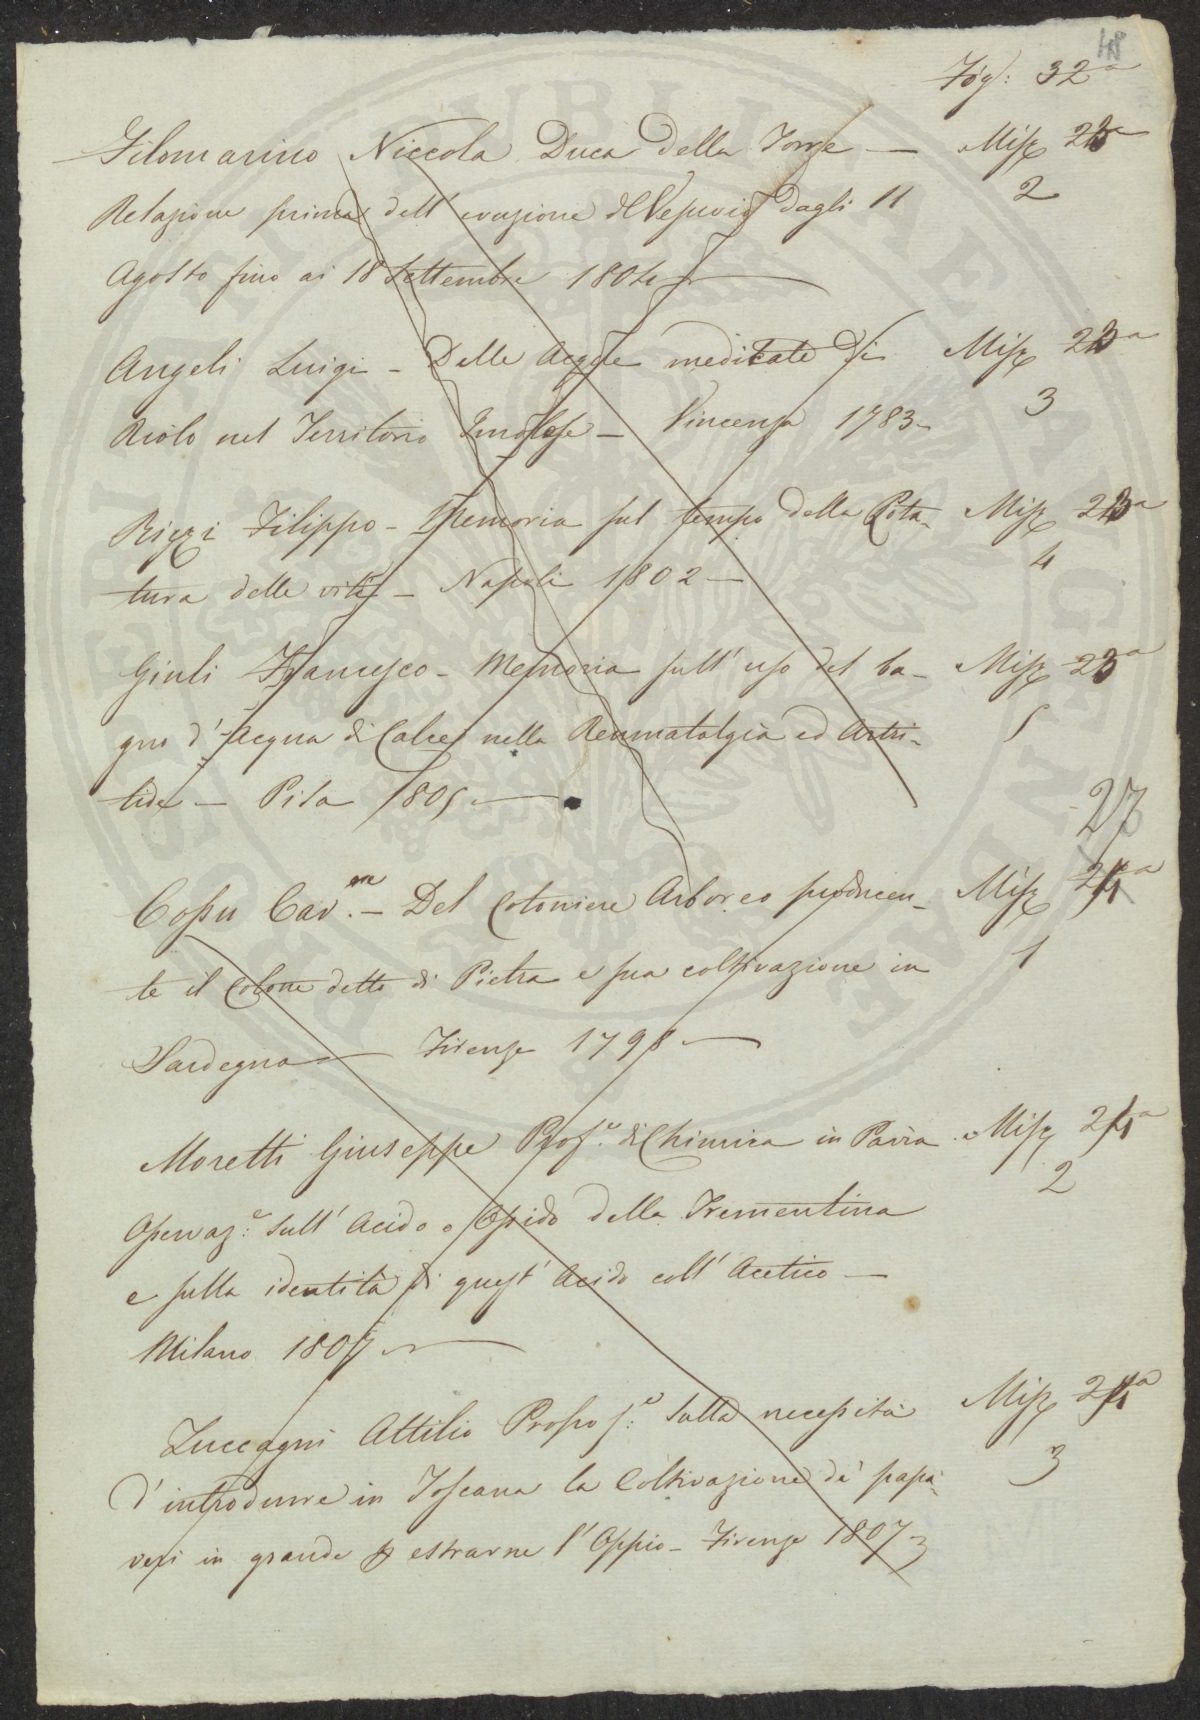 48
Fog: 32a
Filomarino Niccola Duca della Torre — Misz 23a
Relazione prima dell'eruzione del Vesuvio dagli 11 2
Agosto fino ai 18 Settembre 1804 —
Angeli Luigi - Delle Acque medicate di Misz 23a
Riolo nel Territorio Imolese — Vincenza 1783 - 3
Rizzi Filippo - Memoria sul tempo della Pota- Misz 23a
tura delle viti - Napoli 1802 — 4
Giuli Francesco - Memoria sull'uso del ba- Misz 23a
gno d'Acqua di Calce nella Reumatalgia ed Artri- 5
tide — Pisa 1805 —
27
Cossu Cav.re - Del Cotoniere Arboreo producen- Misz 24a
te il Cotone detto di Pietra e sua coltivazione in 1
Sardegna — Firenze 1798 —
Moretti Giuseppe Prof.e di Chimica in Pavia - Misz 24a
Osservaz.e sull'Acido o Ossido della Trementina 2
e sulla identità di quest'Acido coll'Acetico —
Milano 1807 —
Zuccagni Attilio Propos.e Sulla necessità Misz 24a
d'introdurre in Toscana la Coltivazione de' papa- 3
veri in grande p estrarne l'Oppio - Firenze 1807